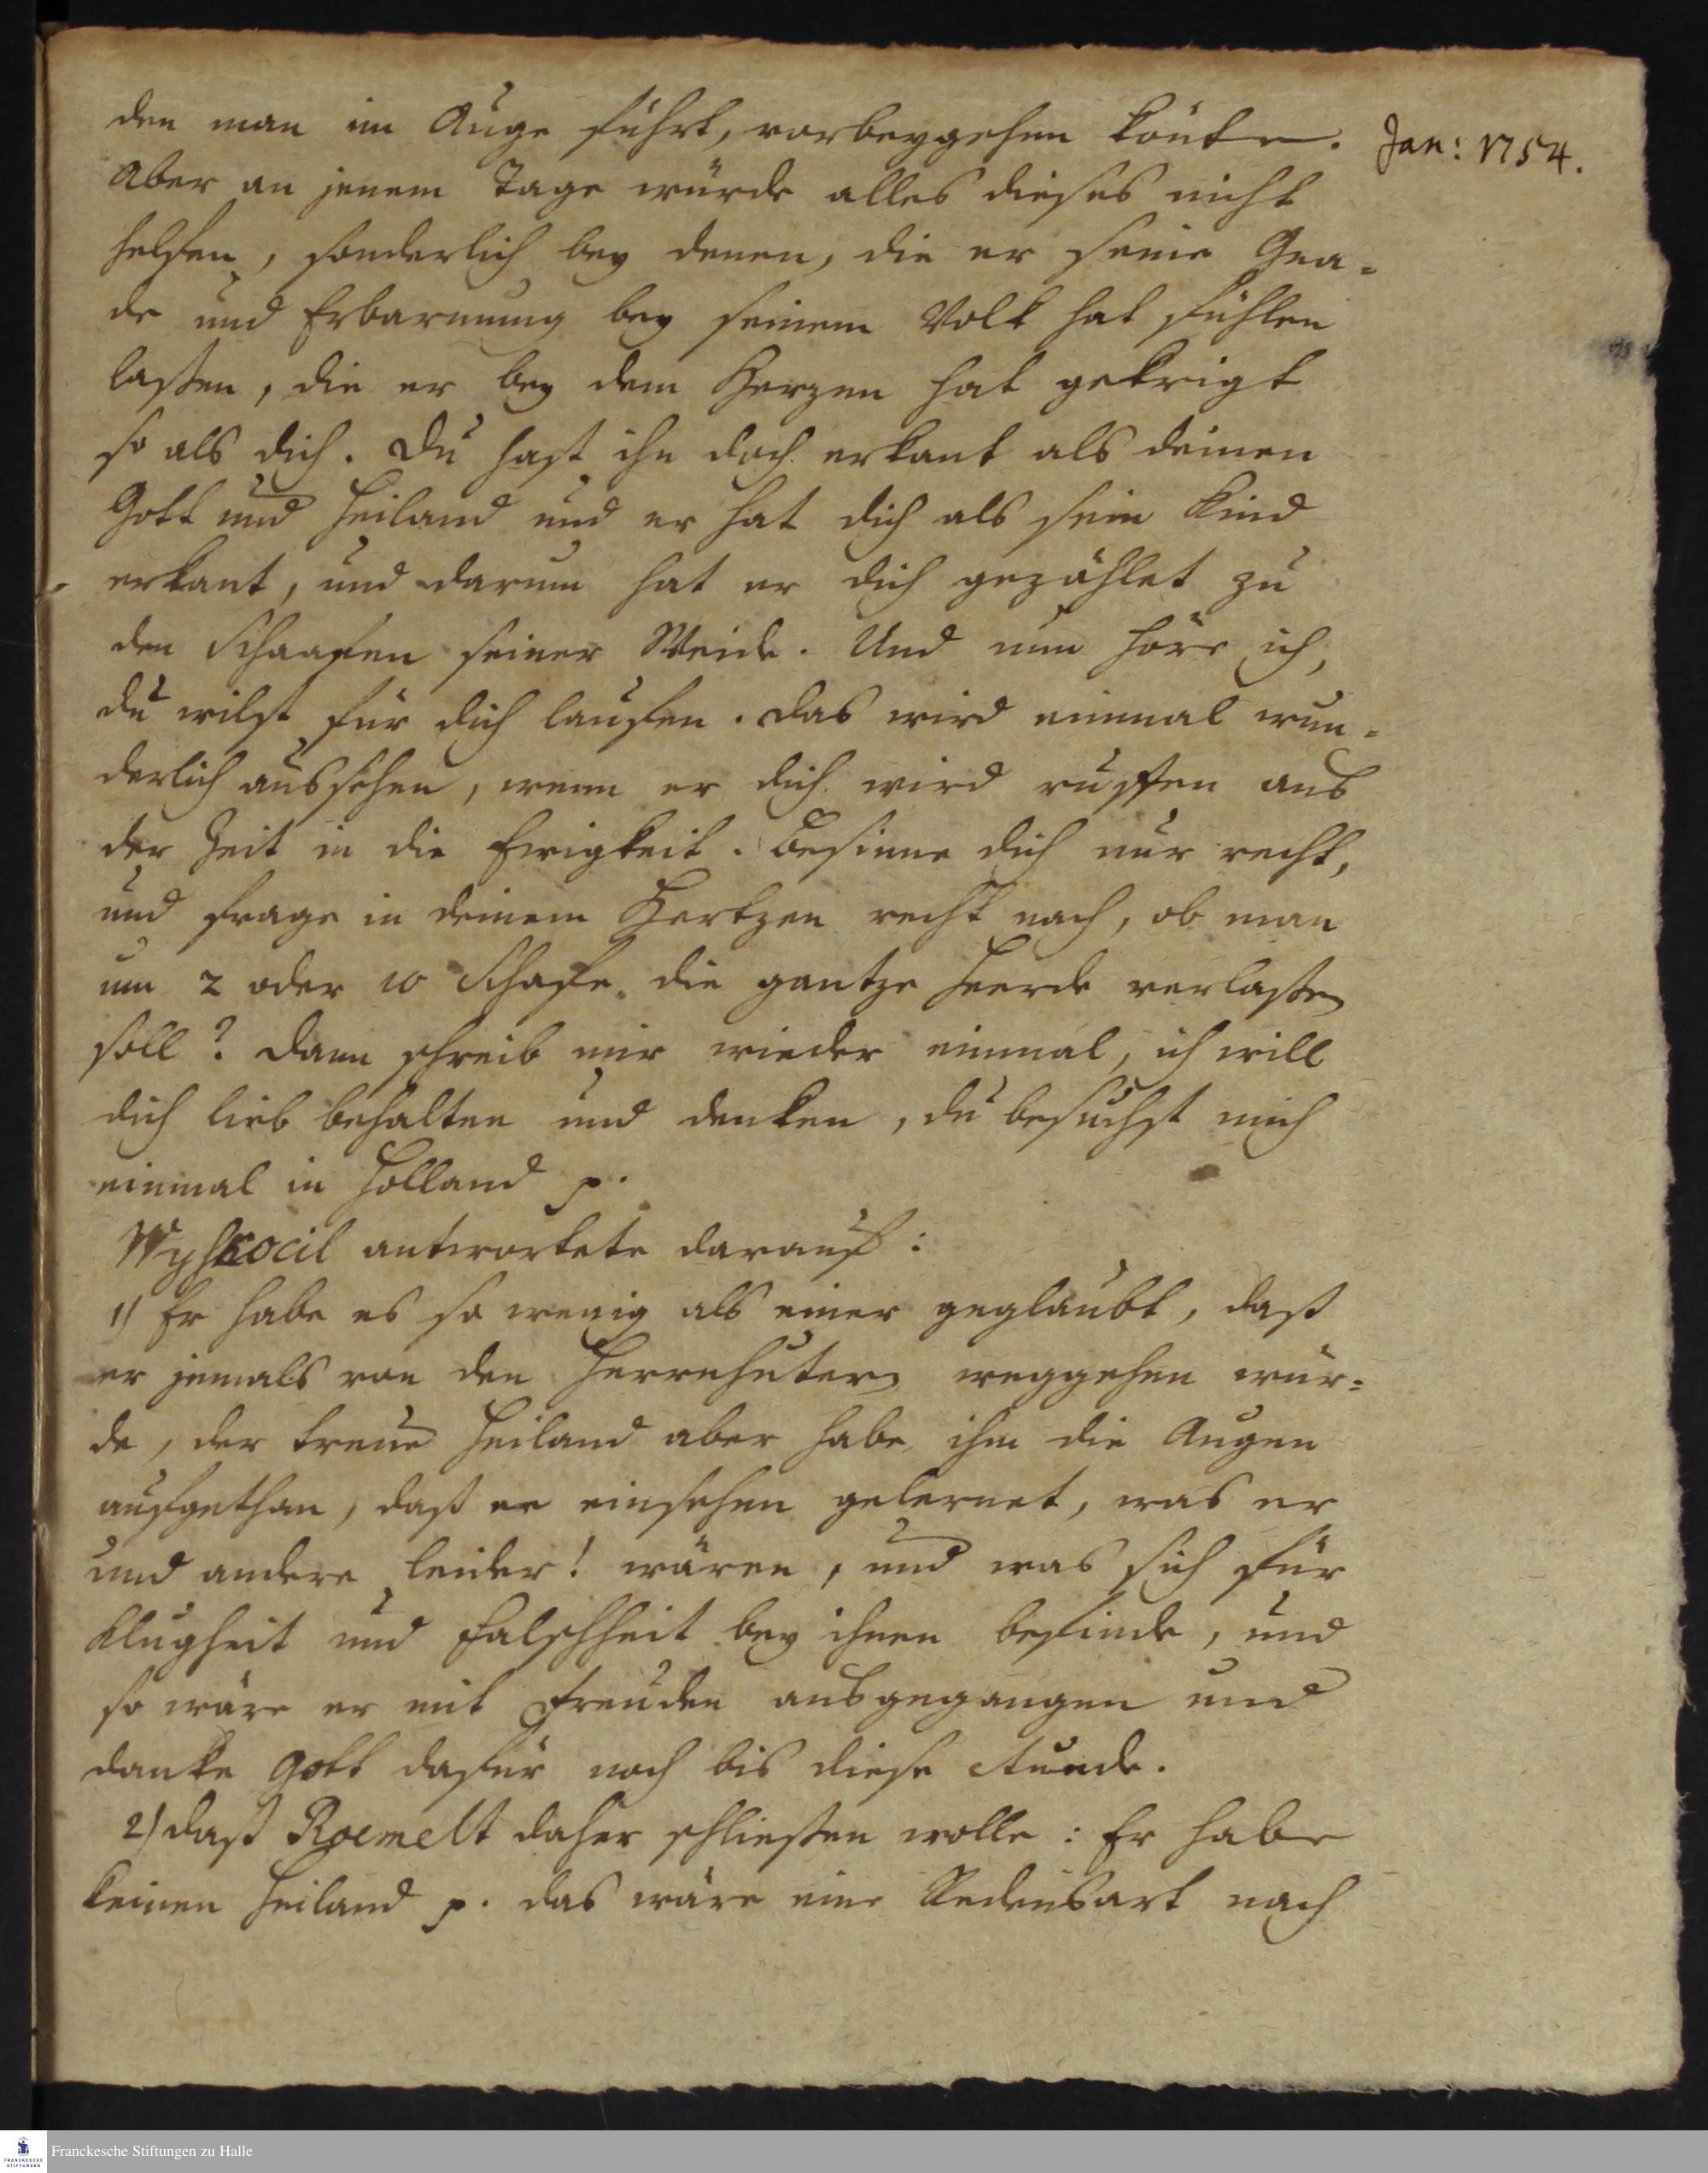 den man im Auge führt, vorbeygehen könte. Jan: 1754.
Aber an jenem Tage würde alles dieses nicht
helfen, sonderlich bey denen, die er seine Gna-
de und Erbarmung bey seinem Volk hat fühlen
lassen, die er bey dem Herzen hat gekrigt
so als dich. Du hast ihn doch erkant als deinen
Gott und Heiland und er hat dich als sein Kind
erkant, und darum hat er dich gezählet zu
den Schaafen seiner Weide. Und nun höre ich,
du wilst für dich laufen. Das wird einmal wun-
derlich aussehen, wenn er dich wird ruffen aus
der Zeit in die Ewigkeit. Besinne dich nur recht,
und frage in deinem Hertzen recht nach, ob man
um 2 oder 10 Schafe die gantze Heerde verlassen
soll? Dann schreib mir wieder einmal, ich will
dich lieb behalten und denken, du besuchst mich
einmal in Holland p.
Wyskocil antwortete darauf:
1) Er habe es so wenig als einer geglaubt, daß
er jemals von den Herrnhutern weggehen wür-
de, der treue Heiland aber habe ihm die Augen
aufgethan, daß er einsehen gelernet, was er
und andere leider! wären, und was sich für
Klugheit und Falschheit bey ihnen befinde, und
so wäre er mit Freuden ausgegangen und
danke Gott dafür noch bis diese Stunde.
2) daß Roemelt daher schliessen wolle: Er habe
keinen Heiland p. das wäre eine Redensart nach
Franckesche Stiftungen zu Halle
FRANCKESCHE
STIFTUNGEN